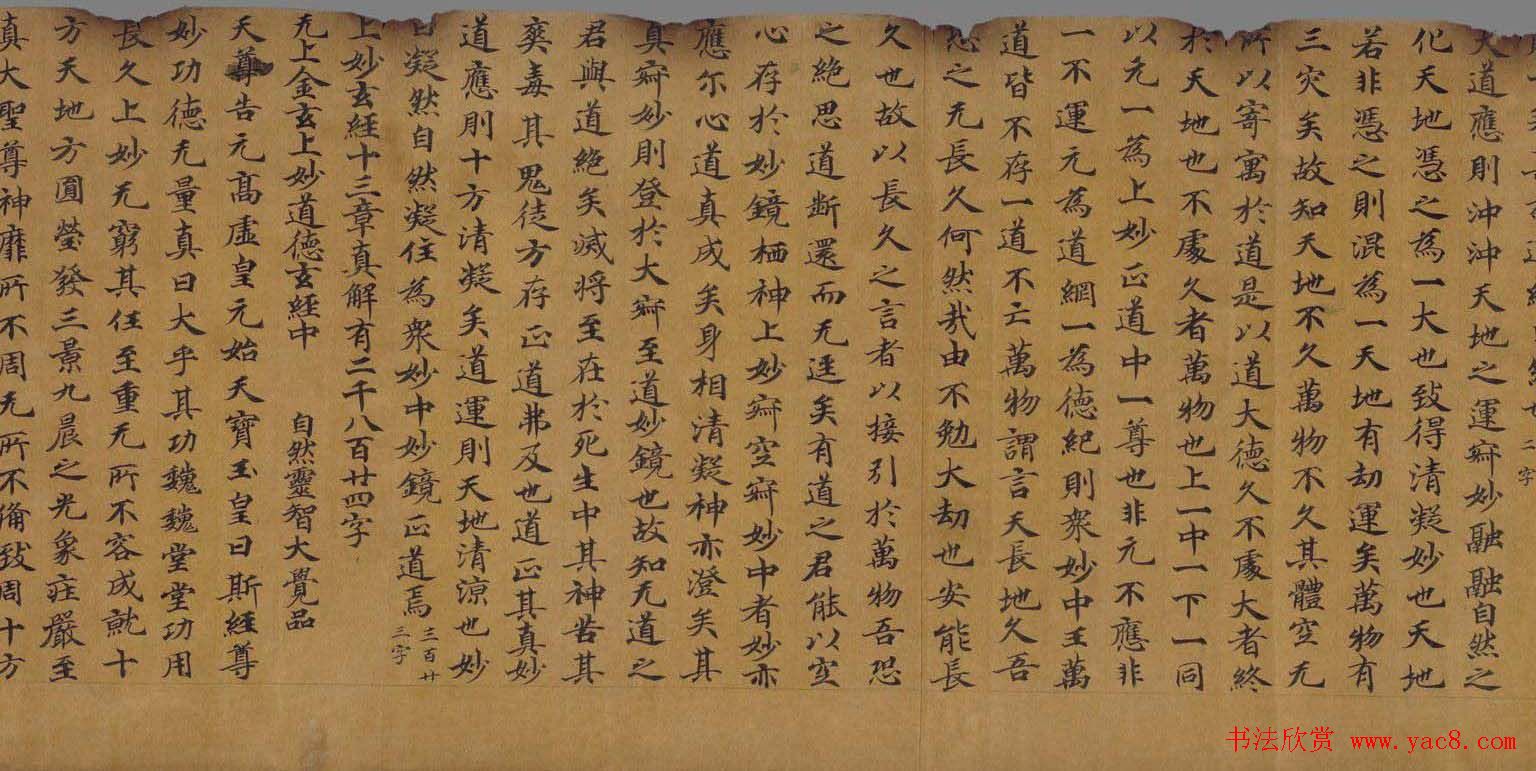 三字
大道應則沖沖天地之運㝥妙融融自然之
化天地憑之為一大也致得清凝妙也天地
若非憑之則混為一天地有劫運矣萬物有
三灾矣故知天地不久萬物不久其體空无
所以寄寓於道是以道大德久不處大者終
於天地也不處久者萬物也上一中一下一同
以元一為上妙正道中一尊也非元不應非
一不運元為道網一為德紀則衆妙中王萬
道皆不存一道不亡萬物謂言天長地久吾
恐之无長久何然哉由不勉大劫也安能長
久也故以長久之言者以接引於萬物吾恐
之絕思道断還而无逕矣有道之君能以空
心存於妙鏡栖神上妙㝥空㝥妙中者妙亦
應尔心道真成矣身相清凝神亦澄矣其
真㝥妙則登於大㝥至道妙鏡也故知无道之
君與道絕矣滅將至在於死生中其神苦其
奕毒其鬼徒方存正道弗及也道正其真妙
道應則十方清凝矣道運則天地清涼也妙
自凝然自然凝住為衆妙中妙鏡正道焉 三百廿三字
上妙玄經十三章真解有二千八百廿四字
无上金玄上妙道德玄經中 自然靈智大覺品
天尊告元髙虛皇元始天寶玉皇曰斯經尊
妙功德无量真曰大乎其功巍巍堂堂功用
長久上妙无窮其住至重无所不容成就十
方天地方圓瑩發三景九晨之光象庄嚴至
真大聖尊神靡所不周无所不俻致周十方
书法欣赏 www.yac8.com